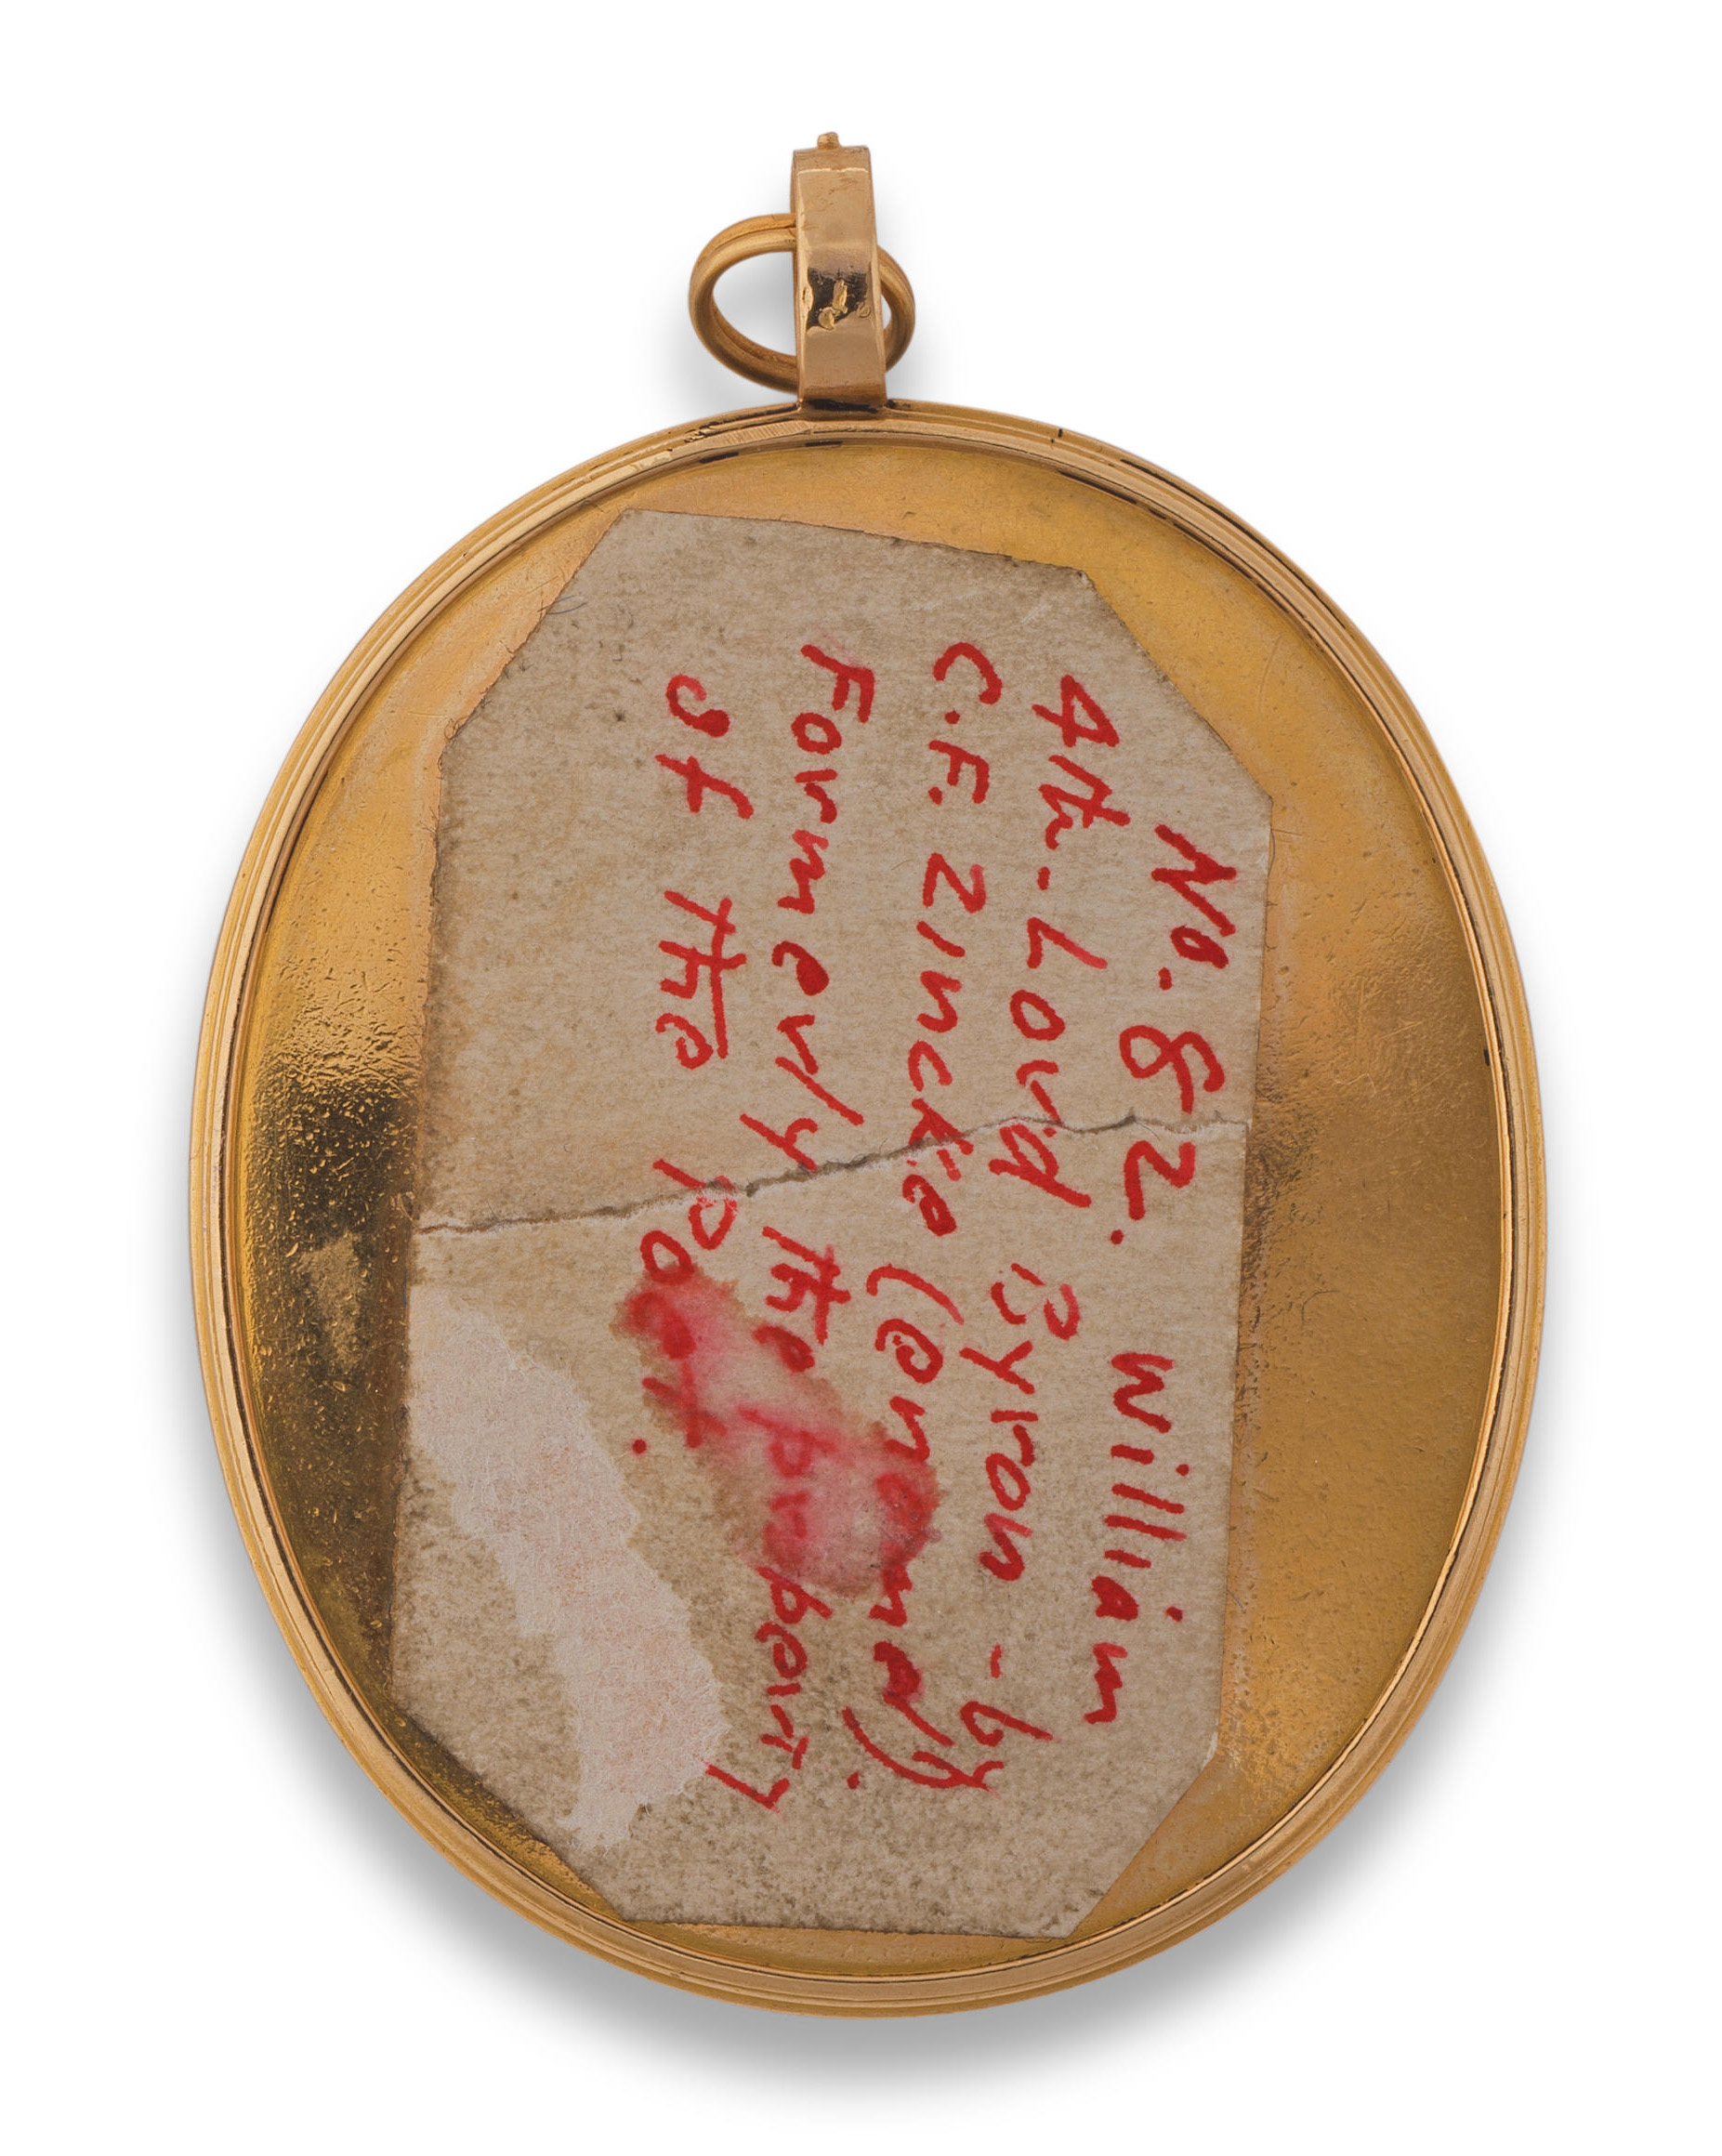 No. 82. William
4th. Lord Byron - by
C.F. Zincke (enamal).
Formerly the property
of the Poet.